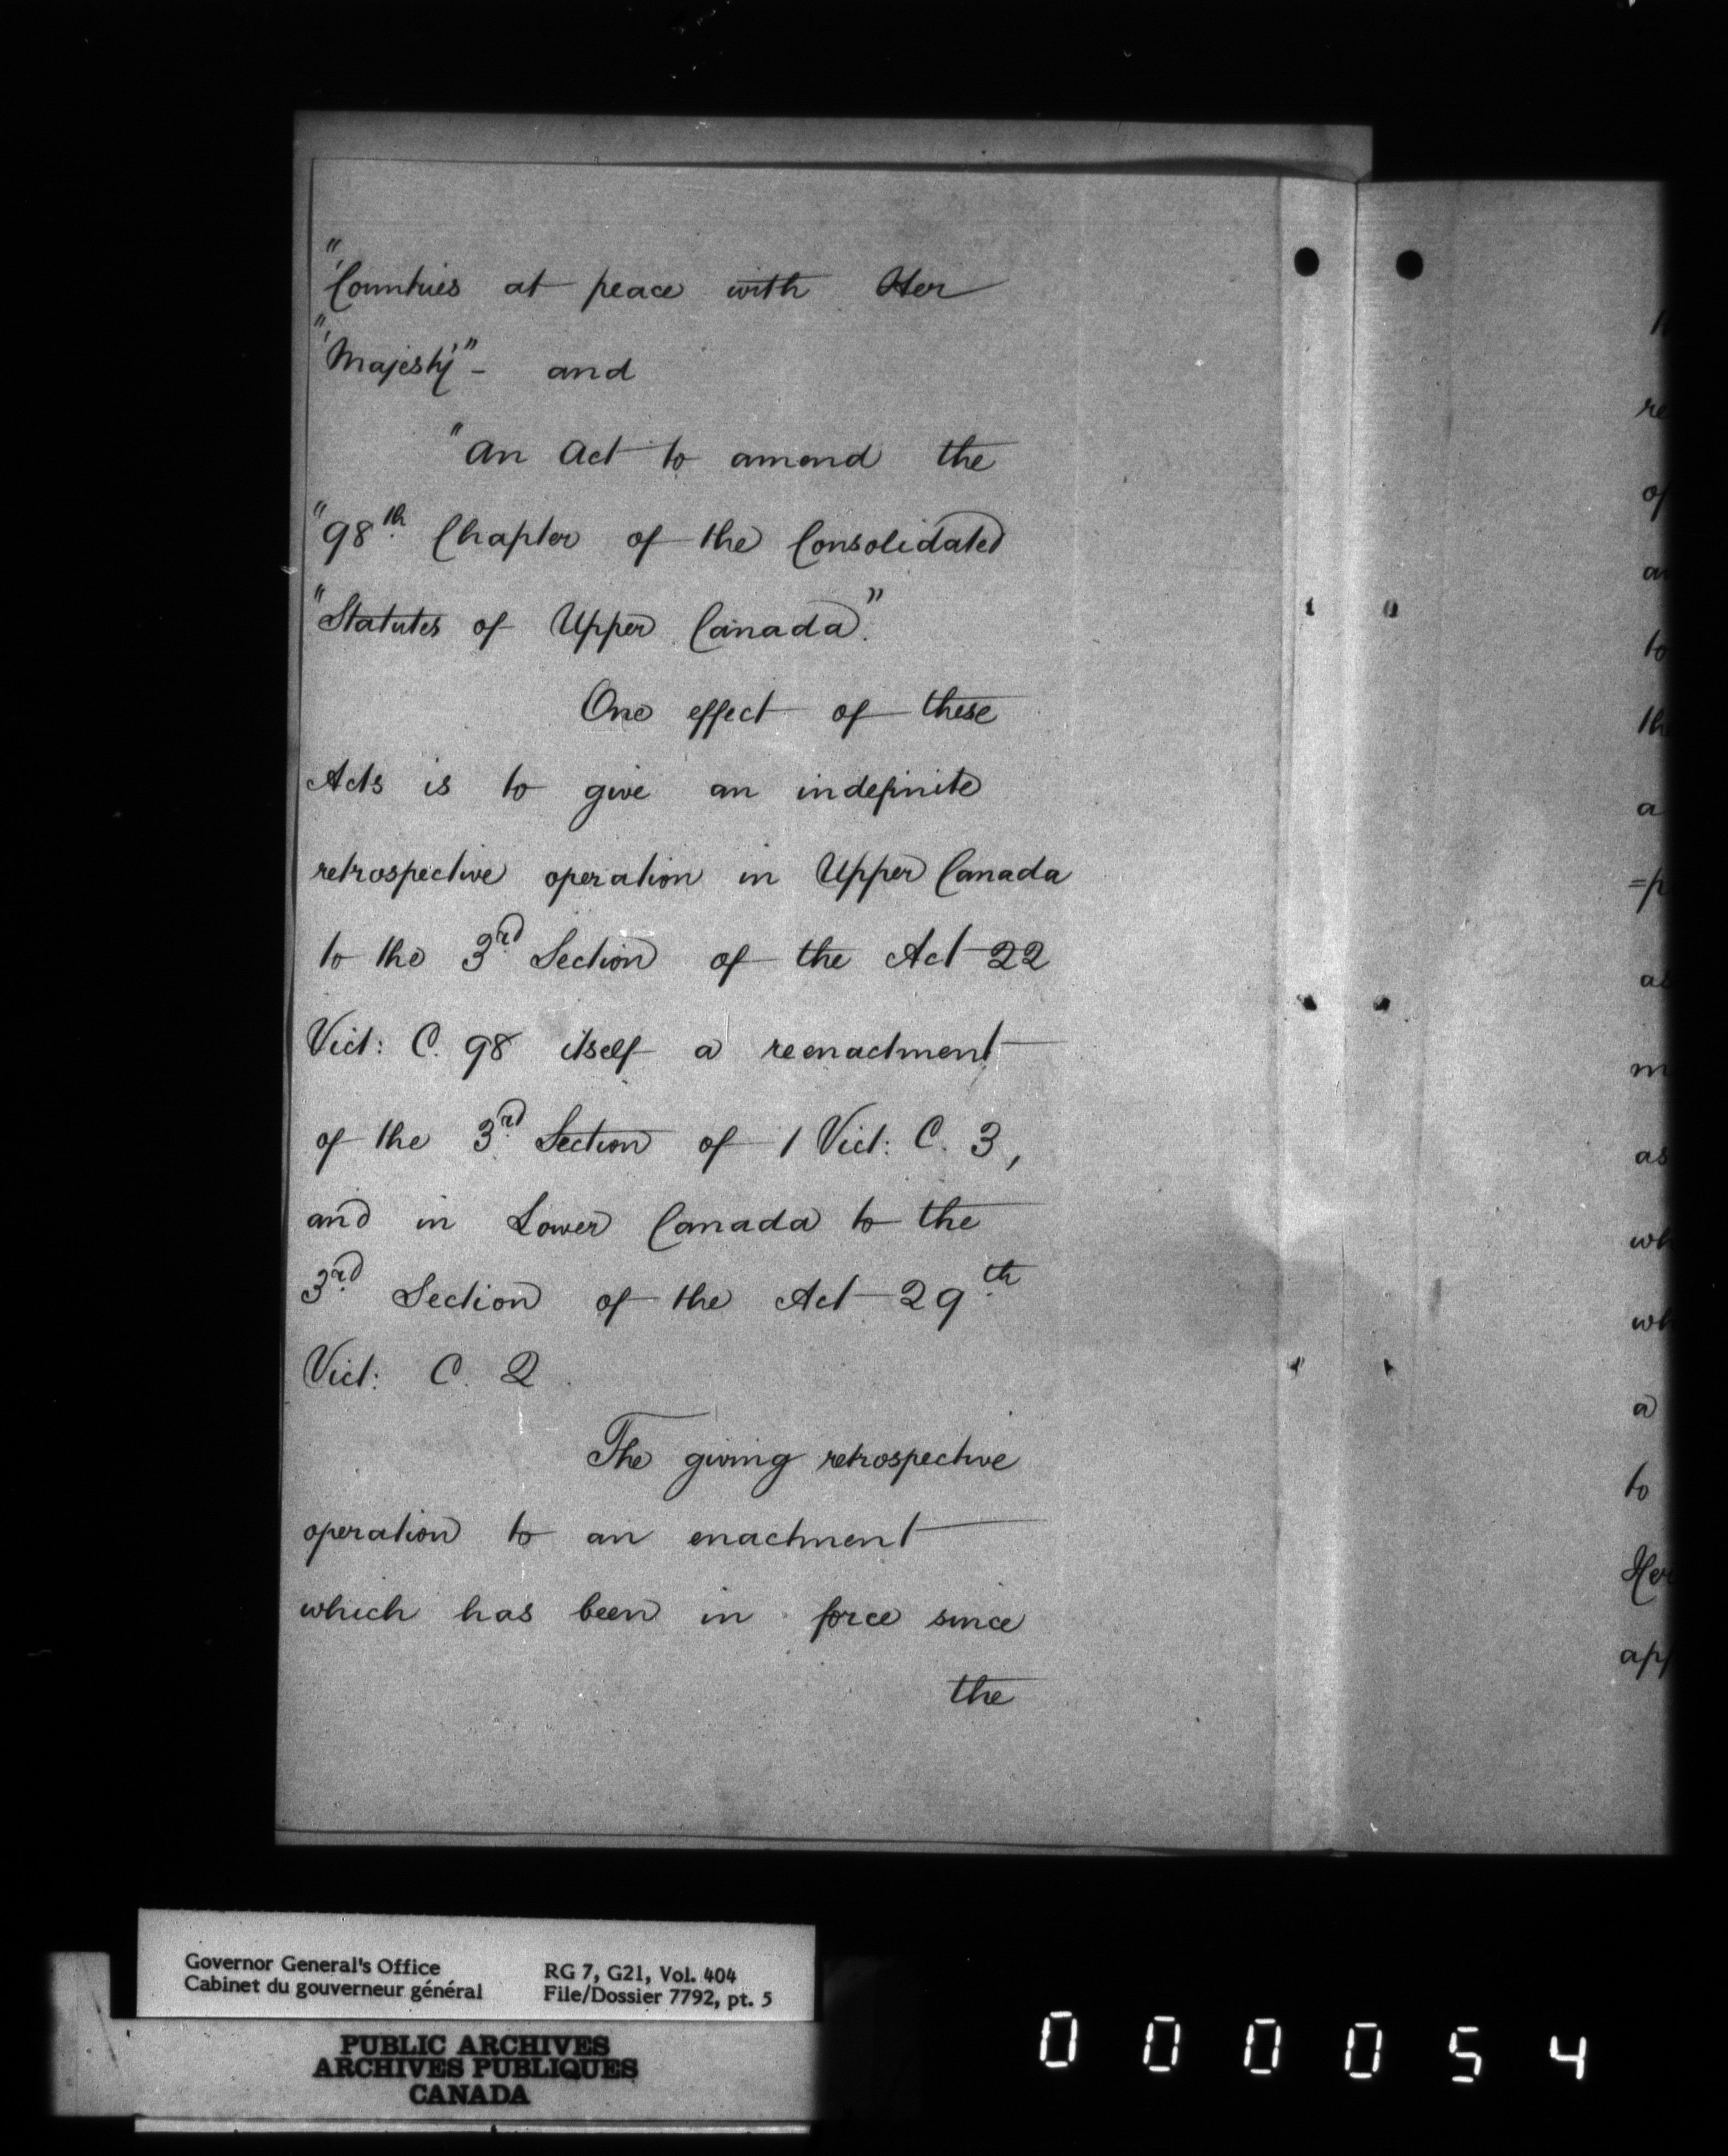 "Countries at peace with Her
"Majesty" - and
"An Act to amend the
"98th Chapter of the Consolidated
"Statutes of Upper Canada."
One effect of these
Acts is to give an indefinite
retrospective operation in Upper Canada
to the 3rd Section of the Act 22
Vict: C. 98 itself a reenactment
of the 3rd Section of 1 Vict: C. 3,
and in Lower Canada to the
3rd Section of the Act 29th
Vict: C. 2.
The giving retrospective
operation to an enactment
which has been in force since
the
re
of
to
a
=p
m
as
wh
wh
a
to
Her
app
Governor General's Office
Cabinet du gouverneur général
RG 7, G21, Vol. 404
File/Dossier 7792, pt. 5
PUBLIC ARCHIVES
ARCHIVES PUBLIQUES
CANADA
000054